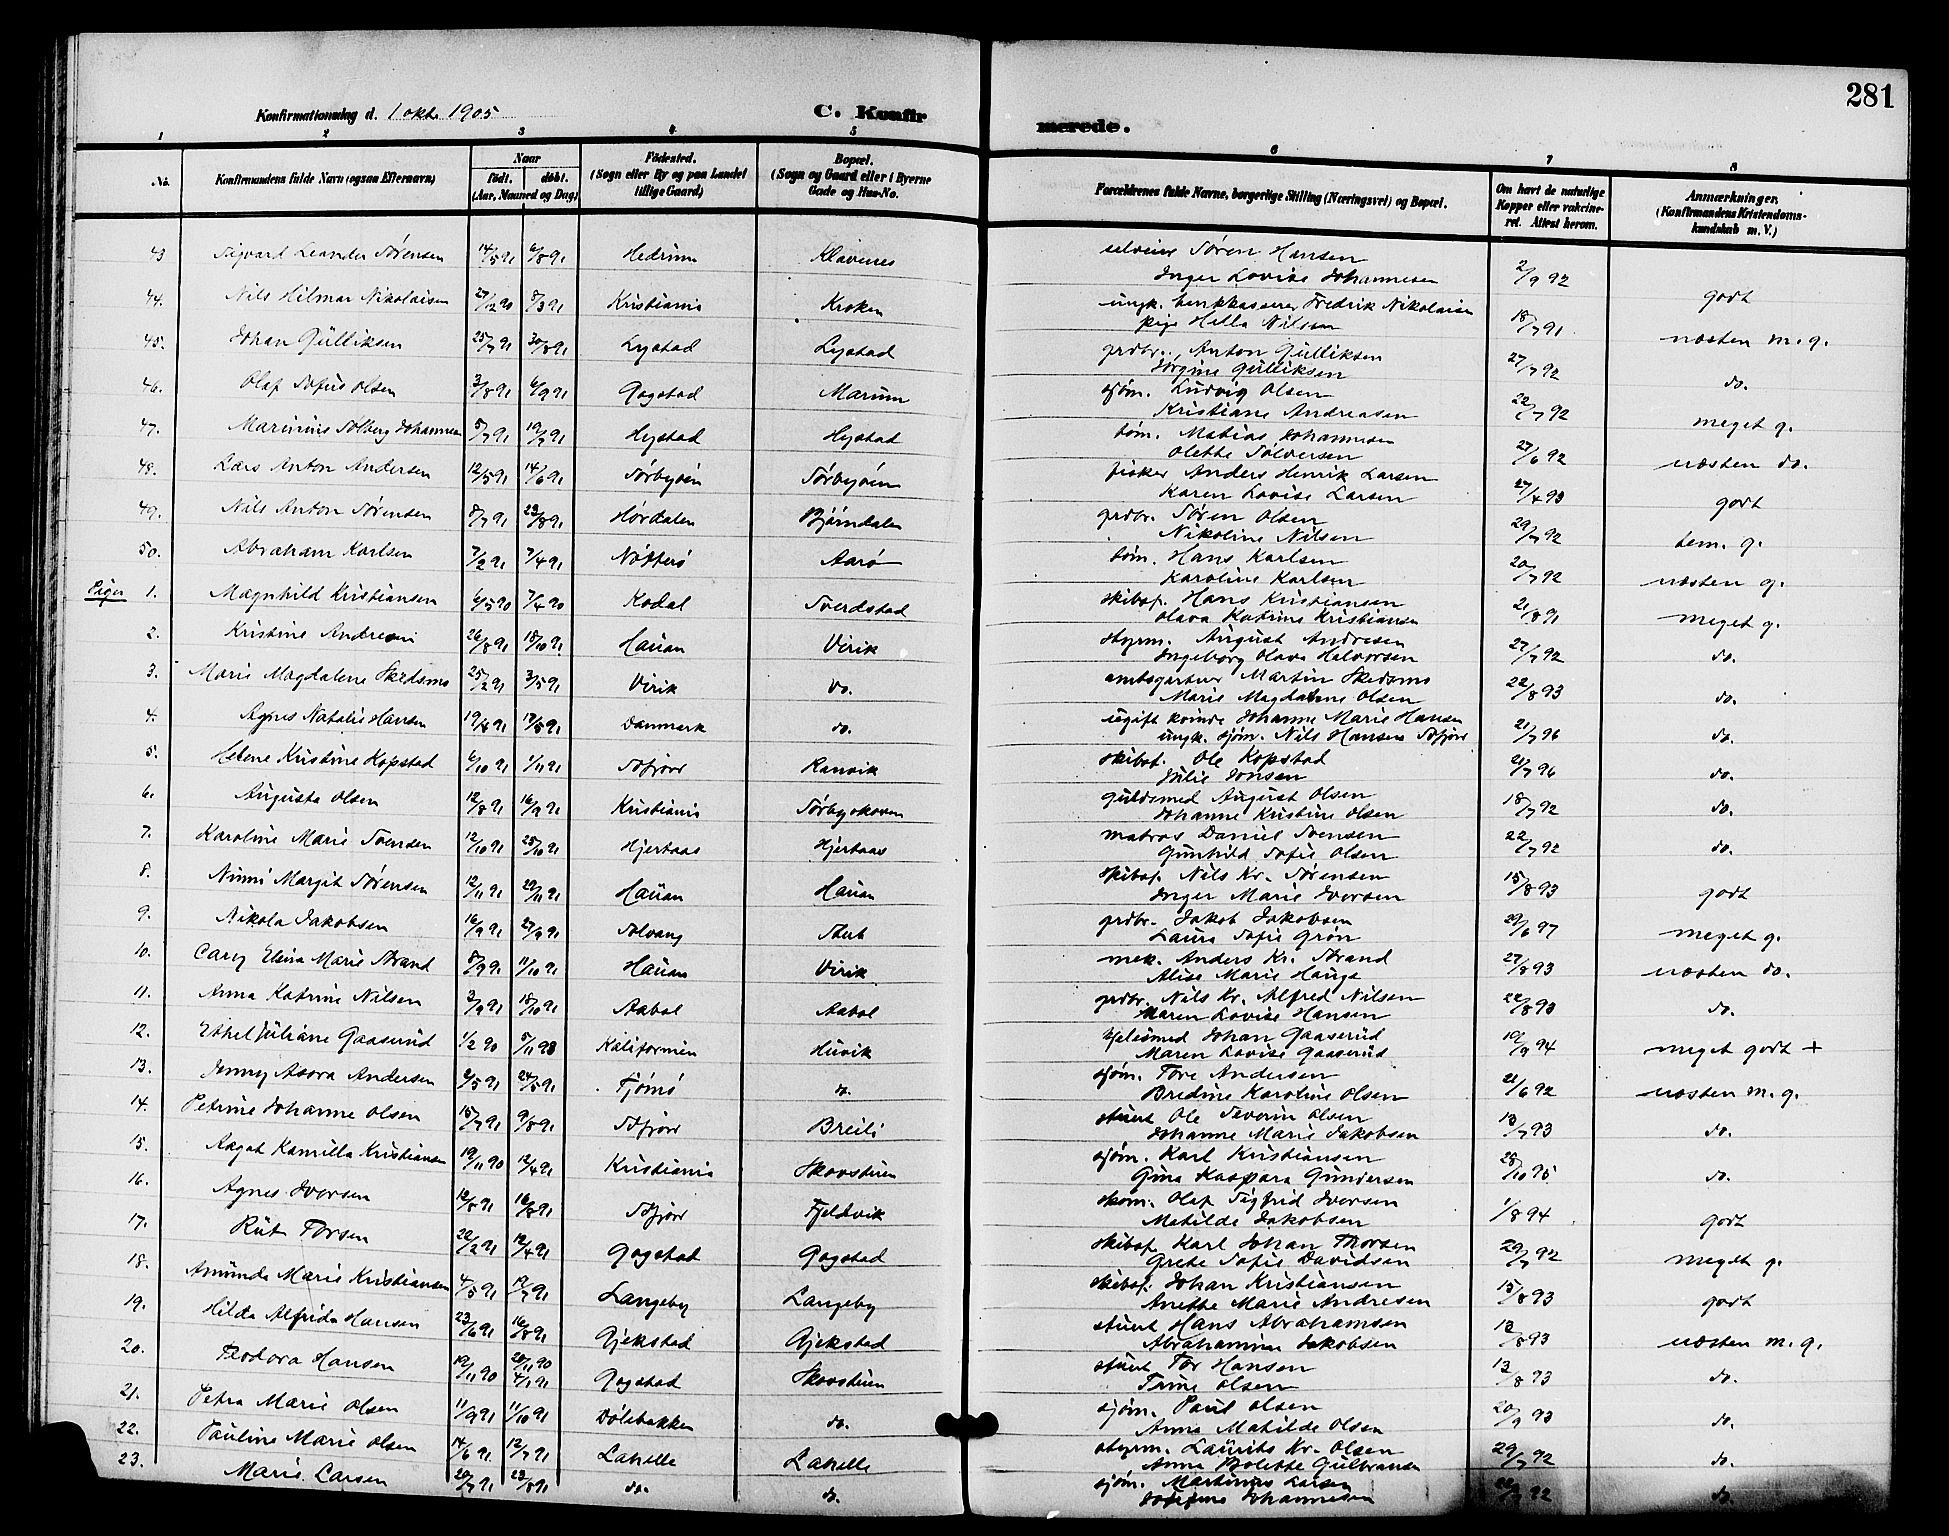 281
Konfirmationsdag d. 1 okt. 1905
C. Konfirmerede.
1 2 3 4 5 6 7 8
No. | Konfirmandens fulde Navn (ogsaa Efternavn) | Naar födt. döbt. (Aar, Maaned og Dag) | Födested. (Sogn eller By og paa Landet tillige Gaard) | Bopæl. (Sogn og Gaard eller i Byerne Gade og Hus-No. | Forældrenes fulde Navne, borgerlige Stilling (Næringsvei) og Bopæl. | Om havt de naturlige Kopper eller vakcineret. Attest herom. | Anmærkninger. (Konfirmandens Kristendomskundskab m. V.)
43 Sigvard Leander Sørensen 14/5 91 6/8 91 Hedrum Klavenes selveier Søren Hansen 2/9 92 godt
Inger Lovise Johannesen
44. Nils Hilmar Nikolaisen 27/12 90 8/3 91 Kristiania Kroken ungk. Fredrik Nikolaisen 18/7 91 næsten m. g.
pige Hella Nilsen
45. Johan Gulliksen 25/7 91 30/8 91 Lystad Lystad grdbr. Anton Gulliksen 27/7 92 do.
Jørgine Gulliksen
46. Olaf Sofus Olsen 3/8 91 6/9 91 Gogstad Marum sjøm. Ludvig Olsen 22/7 92 meget g.
Kristiane Andreasen
47. Marinius Solberg Johannesen 5/7 91 19/7 91 Hystad Hystad tøm. Matias Johannesen 27/6 92 næsten do.
Olette Sølversen
48. Lars Anton Andersen 12/5 91 14/6 91 Sørbyøen Sørbyøen fisker Anders Henrik Larsen 27/4 93 godt
Karen Lovise Larsen
49. Nils Anton Sørensen 8/7 91 23/8 91 Hørdalen Bjørndalen grdbr. Søren Olsen 29/7 92 tem. g.
Nikoline Nilsen
50. Abraham Karlsen 7/2 91 7/4 91 Nøtterø Aarø tøm. Hans Karlsen 20/7 92 næsten g.
Karoline Karlsen
Piger 1. Magnhild Kristiansen 6/5 90 7/4 90 Kodal Sverdstad skibsf. Hans Kristiansen 21/8 91 meget g.
Olava Katrine Kristiansen
2. Kristine Andresen 26/8 91 18/10 91 Hauan Virik styrm. August Andresen 27/7 92 do.
Ingeborg Olava Halvorsen
3. Marie Magdalene Skedsmo 25/2 91 3/5 91 Virik do. amtsgartner Martin Skedsmo 22/8 93 do.
Marie Magdalene Olsen
4. Agnes Natalie Hansen 19/4 91 17/5 91 Danmark do. ugift kvinde Johanne Marie Hansen 21/7 96 do.
ungk. sjøm. Nils Hansen Sfjord
5. Helene Kristine Kopstad 6/10 91 1/11 91 Sfjord Ranvik skibsf. Ole Kopstad 21/7 96 do.
Julie Jonsen
6. Augusta Olsen 12/8 91 16/9 91 Kristiania Sørbyskoven guldsmed August Olsen 18/7 92 do.
Johanne Kristine Olsen
7. Karoline Marie Svensen 12/10 91 25/10 91 Hjertaas Hjertaas matros Daniel Svensen 22/7 92 do.
Gunhild Sofie Olsen
8. Ninni Margit Sørensen 12/11 91 29/11 91 Hauan Hauan skibsf. Nils Kr. Sørensen 15/8 93 godt
Inger Marie Iversen
9. Nikola Jakobsen 16/9 91 27/9 91 Solvang Stub grdbr. Jakob Jakobsen 29/6 97 meget g.
Laura Sofie Grøn
10. Cary Elena Marie Strand 8/9 91 11/10 91 Hauan Virik mek. Anders Kr. Strand 27/8 93 næsten do.
Alise Marie Hauge
11. Anna Katrine Nilsen 3/9 91 18/10 91 Aabol Aabol grdbr. Nils Kr. Alfred Nilsen 22/8 93 do.
Maren Lovise Hansen
12. Ethel Juliane Gaaserud 1/2 90 5/11 98 Kalifornien Huvik kjelesmed Johan Gaaserud 19/9 94 meget godt +
Maren Lovise Gaaserud
13. Jenny Asora Andersen 2/5 91 24/5 91 Tjømø do. sjøm. Tore Andersen 21/6 92 næsten m. g.
Bredine Karoline Olsen
14. Petrine Johanne Olsen 15/7 91 9/8 91 Sfjord Breili stuert Ole Severin Olsen 13/7 93 do.
Johanne Marie Jakobsen
15. Aagot Kamilla Kristiansen 19/11 90 12/4 91 Kristiania Skovstuen sjøm. Karl Kristiansen 28/10 95 do.
Gina Kaspara Gundersen
16. Agnes Iversen 12/8 91 16/8 91 Sfjord Fjeldvik skom. Olaf Sigfrid Iversen 1/8 94 godt
Matilde Jakobsen
17. Rut Torsen 22/2 91 12/4 91 Gogstad Gogstad skibsf. Karl Johan Thorsen 29/7 92 meget g.
Grete Sofie Davidsen
18. Amunda Marie Kristiansen 4/5 91 19/7 91 Langeby Langeby skibsf. Johan Kristiansen 15/8 93 godt
Anette Marie Andresen
19. Hilda Alfrida Hansen 23/6 91 16/8 91 Gjekstad Gjekstad stuert Hans Abrahamsen 13/8 93 næsten m. g.
Abrahamine Jakobsen
20. Teodora Hansen 19/11 90 28/11 90 4/1 91 Gogstad Skovstuen stuert Tor Hansen 13/8 93 do.
Trine Olsen
21. Petra Marie Olsen 11/9 91 11/10 91 Dølebakken do. sjøm. Paul Olsen 20/9 93 do.
Anna Matilde Olsen
22. Pauline Marie Olsen 14/6 91 12/7 91 Lahelle Lahelle styrm. Laurits Kr. Olsen 29/7 92 do.
Anna Bolette Gulbransen
23. Marie Larsen 20/7 91 23/8 91 do. do. sjøm. Martinius Larsen 22/7 92 do.
Josefine Johannesen